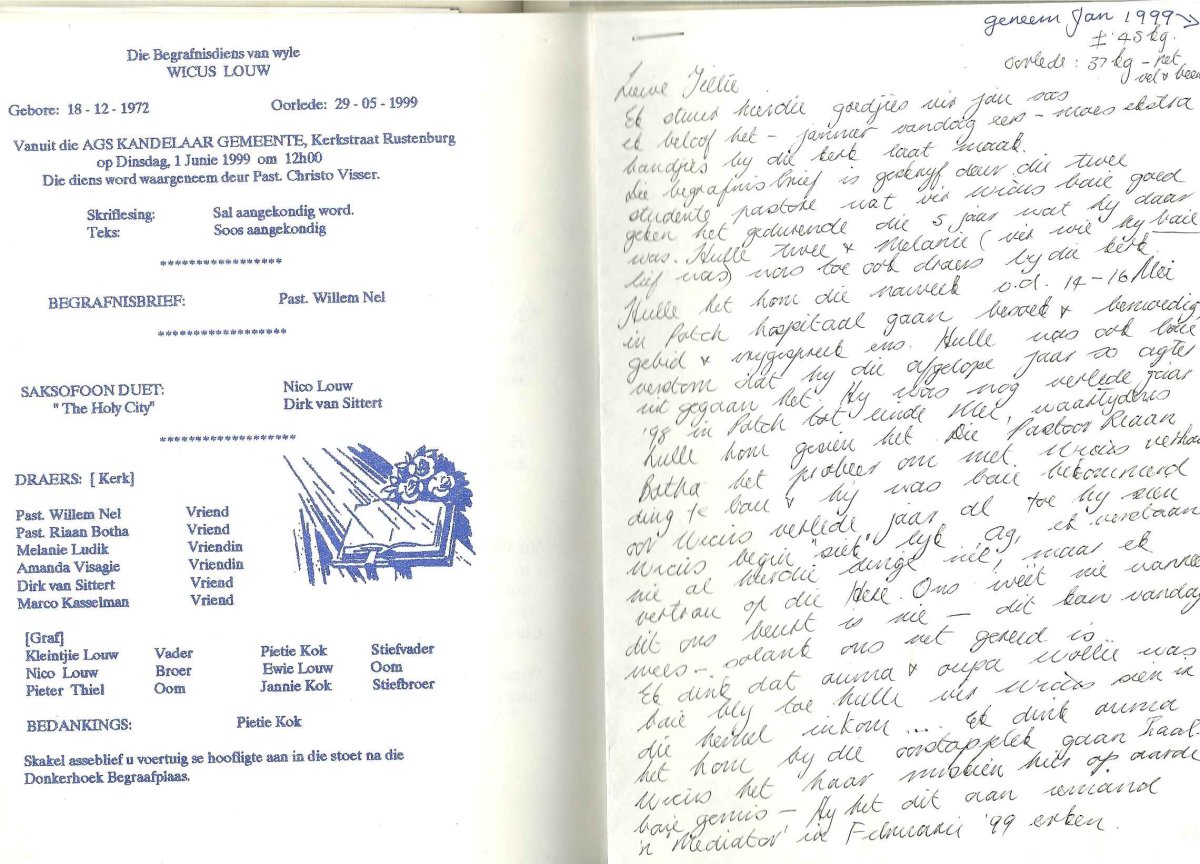 Die Begrafnisdiens van wyle
WICUS LOUW
Gebore: 18 - 12 - 1972 Oorlede: 29 - 05 - 1999
Vanuit die AGS KANDELAAR GEMEENTE, Kerkstraat Rustenburg
op Dinsdag, 1 Junie 1999 om 12h00
Die diens word waargeneem deur Past. Christo Visser.
Skriflesing: Sal aangekondig word.
Teks: Soos aangekondig
*****************
BEGRAFNISBRIEF: Past. Willem Nel
******************
SAKSOFOON DUET: Nico Louw
"The Holy City" Dirk van Sittert
*******************
DRAERS: [ Kerk]
Past. Willem Nel Vriend
Past. Riaan Botha Vriend
Melanie Ludik Vriendin
Amanda Visagie Vriendin
Dirk van Sittert Vriend
Marco Kasselman Vriend
[Graf]
Kleintjie Louw Vader Pietie Kok Stiefvader
Nico Louw Broer Ewie Louw Oom
Pieter Thiel Oom Jannie Kok Stiefbroer
BEDANKINGS: Pietie Kok
Skakel asseblief u voertuig se hoofligte aan in die stoet na die
Donkerhoek Begraafplaas.
geneem Jan 1999 →
± 45 kg.
oorlede: 37 kg - net
vel & been
Liewe Tillie
Ek stuur hierdie goedjies vir jou soos
ek beloof het - jammer vandag eers - moes ekstra
bandjies by die kerk laat maak.
Die begrafnisbrief is geskryf deur die twee
studente pastore wat vir Wicus baie goed
geken het gedurende die 5 jaar wat hy daar
was. Hulle twee & Melanie (vir wie hy baie
lief was) was toe ook draers by die kerk.
Hulle het hom die naweek v.d. 14-16 Mei
in Potch hospitaal gaan besoek & bemoedig,
gebid & vrygespreek ens. Hulle was ook baie
verstom dat hy die afgelope jaar so agter
uit gegaan het. Hy was nog verlede jaar
'98 in Potch tot einde Mei, waartydens
hulle hom gesien het. Die Pastoor Riaan
Botha het probeer om met Wicus verhou
ding te bou & hy was baie bekommerd
oor Wicus verlede jaar al toe hy sien
Wicus begin "siek" lyk. Ag, ek verstaan
nie al hierdie dinge nie, maar ek
vertrou op die Here. Ons weet nie wanneer
dit ons beurt is nie - dit kan vandag
wees - solank ons net gereed is...
Ek dink dat ouma & oupa Wollie was
baie bly toe hulle vir Wicus sien in
die hemel inkom... Ek dink ouma
het hom by die voordeur gaan haal.
Wicus het haar hier op aarde
baie gemis - Hy het dit aan iemand
'n 'Mediator' in Februarie '99 erken.